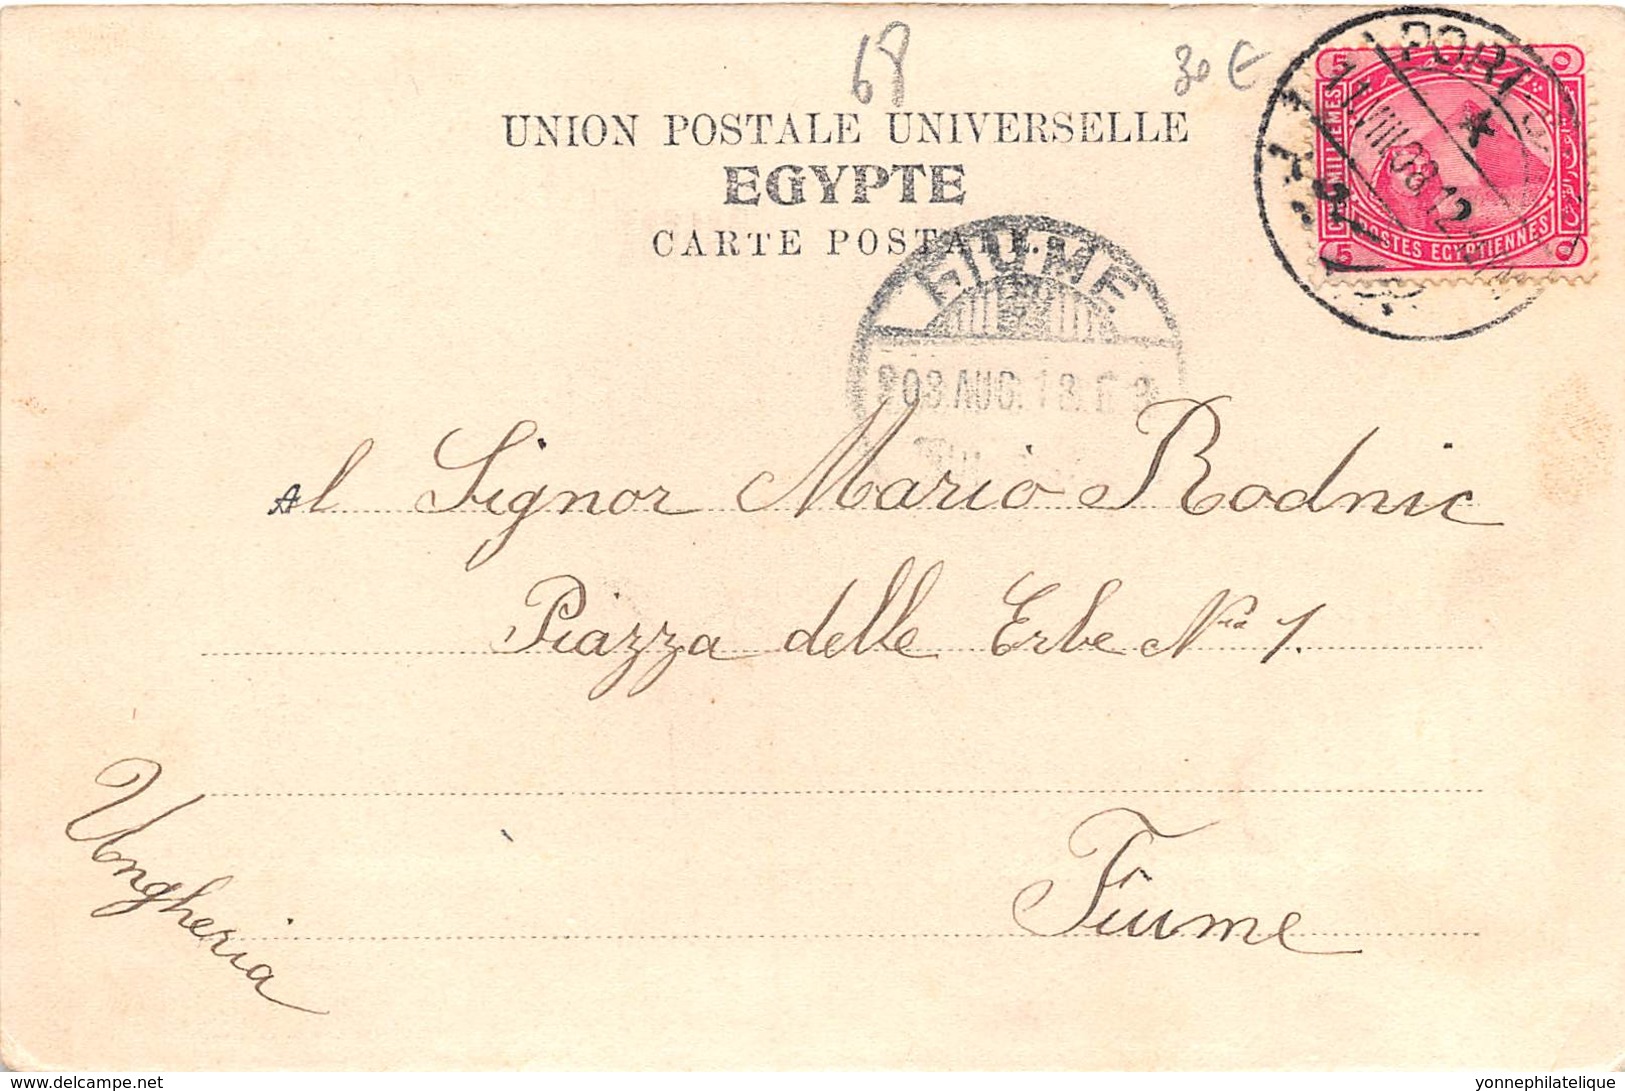 68
30 €
UNION POSTALE UNIVERSELLE
EGYPTE
CARTE POSTALE.
5 5
CINQ MILLIEMES
POSTES EGYPTIENNES
PORT
11.VIII.08.12
FIUME
908 AUG. 18.
Al Signor Mario Rodnic
Piazza delle Erbe Nro 1.
Fiume
Ungheria
www.delcampe.net
yonnephilatelique